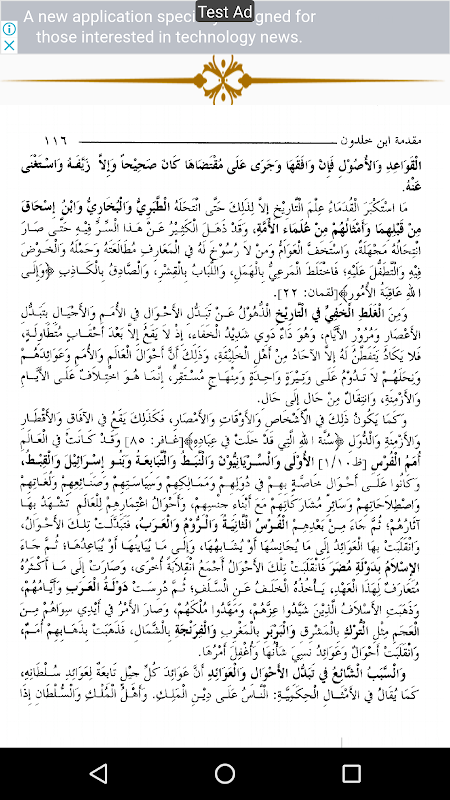 A new application specially designed for
those interested in technology news.
Test Ad
مقدمة ابن خلدون ١١٦
الْقَوَاعِدِ وَالْأُصُوْلِ فَإِنْ وَافَقَهَا وَجَرَى عَلَى مُقْتَضَاهَا كَانَ صَحِيْحاً وَإِلاَّ زَيَّفَهُ وَاسْتَغْنَى
عَنْهُ.
مَا اسْتَكْبَرَ الْقُدَمَاءُ عِلْمَ التَّارِيْخِ إِلاَّ لِذَلِكَ حَتَّى انْتَحَلَهُ الطَّبَرِيُّ وَالْبُخَارِيُّ وَابْنُ إِسْحَاقَ
مِنْ قَبْلِهِمَا وَأَمْثَالُهُمْ مِنْ عُلَمَاءِ الْأُمَّةِ، وَقَدْ ذَهَلَ الْكَثِيْرُ عَنْ هَذَا السِّرِّ فِيْهِ حَتَّى صَارَ
انْتِحَالُهُ مَجْهَلَةً، وَاسْتَخَفَّ الْعَوَامُّ وَمَنْ لاَ رُسُوْخَ لَهُ فِي الْمَعَارِفِ مُطَالَعَتَهُ وَحَمْلَهُ وَالْخَوْضَ
فِيْهِ وَالتَّطَفُّلَ عَلَيْهِ؛ فَاخْتَلَطَ الْمَرْعِيُّ بِالْهَمَلِ، وَاللُّبَابُ بِالْقِشْرِ، وَالصَّادِقُ بِالْكَاذِبِ ﴿وَإِلَى
اللهِ عَاقِبَةُ الْأُمُورِ﴾[لقمان: ٢٢].
وَمِنَ الْغَلَطِ الْخَفِيِّ فِي التَّارِيْخِ الذُّهُوْلُ عَنْ تَبَدُّلِ الْأَحْوَالِ فِي الْأُمَمِ وَالْأَجْيَالِ بِتَبَدُّلِ
الْأَعْصَارِ وَمُرُوْرِ الْأَيَّامِ، وَهُوَ دَاءٌ دَوِيٌّ شَدِيْدُ الْخَفَاءِ، إِذْ لاَ يَقَعُ إِلاَّ بَعْدَ أَحْقَابٍ مُتَطَاوِلَةٍ،
فَلاَ يَكَادُ يَتَفَطَّنُ لَهُ إِلاَّ الآحَادُ مِنْ أَهْلِ الْخَلِيْقَةِ، وَذَلِكَ أَنَّ أَحْوَالَ الْعَالَمِ وَالْأُمَمِ وَعَوَائِدَهُمْ
وَنِحَلَهُمْ لاَ تَدُوْمُ عَلَى وَتِيْرَةٍ وَاحِدَةٍ وَمِنْهَاجٍ مُسْتَقِرٍّ، إِنَّمَا هُوَ اخْتِلاَفٌ عَلَى الْأَيَّامِ
وَالْأَزْمِنَةِ، وَانْتِقَالٌ مِنْ حَالٍ إِلَى حَالٍ.
وَكَمَا يَكُوْنُ ذَلِكَ فِي الْأَشْخَاصِ وَالْأَوْقَاتِ وَالْأَمْصَارِ، فَكَذَلِكَ يَقَعُ فِي الآفَاقِ وَالْأَقْطَارِ
وَالْأَزْمِنَةِ وَالدُّوَلِ ﴿سُنَّةَ اللهِ الَّتِي قَدْ خَلَتْ فِي عِبَادِهِ﴾[غافر: ٨٥] وَقَدْ كَانَتْ فِي الْعَالَمِ
أُمَمُ الْفُرْسِ [ظ١/١٠] الْأُوْلَى وَالسُّرْيَانِيُّوْنَ وَالنَّبَطُ وَالتَّبَابِعَةُ وَبَنُو إِسْرَائِيْلَ وَالْقِبْطُ،
وَكَانُوا عَلَى أَحْوَالٍ خَاصَّةٍ بِهِمْ فِي دُوَلِهِمْ وَمَمَالِكِهِمْ وَسِيَاسَتِهِمْ وَصَنَائِعِهِمْ وَلُغَاتِهِمْ
وَاصْطِلاَحَاتِهِمْ وَسَائِرِ مُشَارَكَاتِهِمْ مَعَ أَبْنَاءِ جِنْسِهِمْ، وَأَحْوَالُ اعْتِمَارِهِمْ لِلْعَالَمِ تَشْهَدُ بِهَا
آثَارُهُمْ؛ ثُمَّ جَاءَ مِنْ بَعْدِهِمُ الْفُرْسُ الثَّانِيَةُ وَالرُّوْمُ وَالْعَرَبُ، فَتَبَدَّلَتْ تِلْكَ الْأَحْوَالُ،
وَانْقَلَبَتْ بِهَا الْعَوَائِدُ إِلَى مَا يُجَانِسُهَا أَوْ يُشَابِهُهَا، وَإِلَى مَا يُبَايِنُهَا أَوْ يُبَاعِدُهَا؛ ثُمَّ جَاءَ
الْإِسْلاَمُ بِدَوْلَةِ مُضَرَ فَانْقَلَبَتْ تِلْكَ الْأَحْوَالُ أَجْمَعُ انْقِلاَبَةً أُخْرَى، وَصَارَتْ إِلَى مَا أَكْثَرُهُ
مُتَعَارَفٌ لِهَذَا الْعَهْدِ، يَأْخُذُهُ الْخَلَفُ عَنِ السَّلَفِ؛ ثُمَّ دُرِسَتْ دَوْلَةُ الْعَرَبِ وَأَيَّامُهُمْ،
وَذَهَبَتِ الْأَسْلاَفُ الَّذِيْنَ شَيَّدُوا عِزَّهُمْ، وَمَهَّدُوا مُلْكَهُمْ، وَصَارَ الْأَمْرُ فِي أَيْدِي سِوَاهُمْ مِنَ
الْعَجَمِ مِثْلِ التُّرْكِ بِالْمَشْرِقِ وَالْبَرْبَرِ بِالْمَغْرِبِ وَالْفِرَنْجَةِ بِالشَّمَالِ، فَذَهَبَتْ بِذَهَابِهِمْ أُمَمٌ،
وَانْقَلَبَتْ أَحْوَالٌ وَعَوَائِدُ نُسِيَ شَأْنُهَا وَأُغْفِلَ أَمْرُهَا.
وَالسَّبَبُ الشَّائِعُ فِي تَبَدُّلِ الْأَحْوَالِ وَالْعَوَائِدِ أَنَّ عَوَائِدَ كُلِّ جِيْلٍ تَابِعَةٌ لِعَوَائِدِ سُلْطَانِهِ،
كَمَا يُقَالُ فِي الْأَمْثَالِ الْحِكَمِيَّةِ: النَّاسُ عَلَى دِيْنِ الْمَلِكِ. وَأَهْلُ الْمُلْكِ وَالسُّلْطَانِ إِذَا